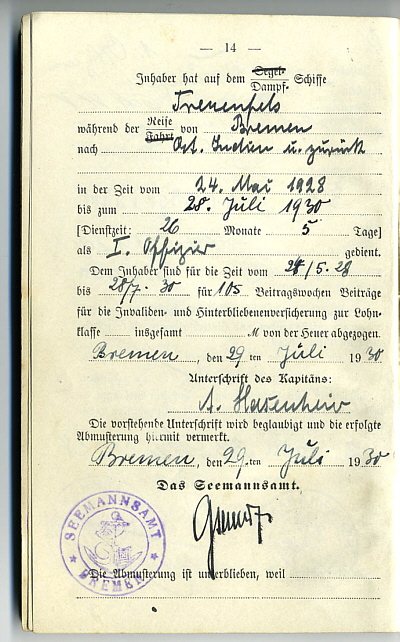 — 14 —
Inhaber hat auf dem Segel- Dampf- Schiffe
Treuenfels
während der Reise Fahrt von Bremen
nach Ost. Indien u. zurück
in der Zeit vom 24. Mai 1928
bis zum 28. Juli 1930
[Dienstzeit: 26 Monate 5 Tage]
als I. Offizier gedient.
Dem Inhaber sind für die Zeit vom 24/5. 28
bis 28/7. 30 für 105 Beitragswochen Beiträge
für die Invaliden- und Hinterbliebenenversicherung zur Lohn-
klasse insgesamt M von der Heuer abgezogen.
Bremen, den 29 ten Juli 1930
Unterschrift des Kapitäns:
A.
Die vorstehende Unterschrift wird beglaubigt und die erfolgte
Abmusterung hiermit vermerkt.
Bremen, den 29. ten Juli 1930
Das Seemannsamt.
SEEMANNSAMT
BREMEN
Die Abmusterung ist unterblieben, weil